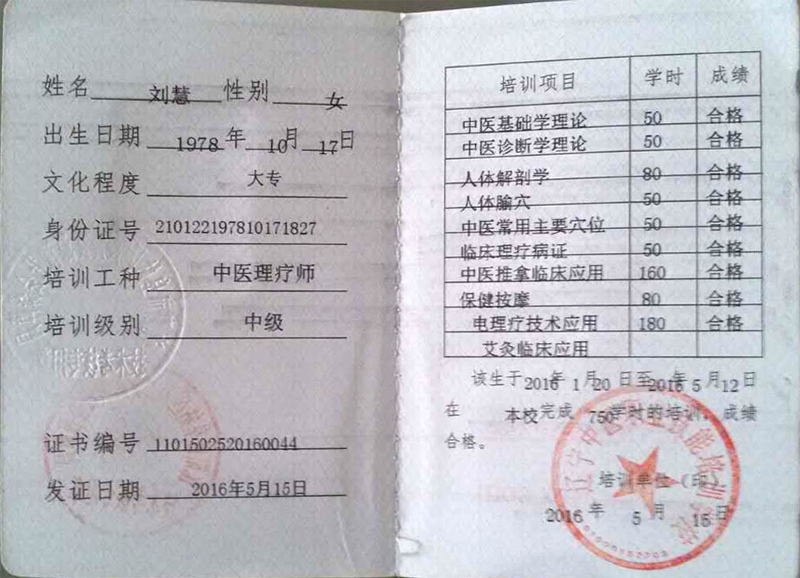 姓名 刘慧 性别 女
出生日期 1978 年 10 月 17 日
文化程度 大专
身份证号 210122197810171827
培训工种 中医理疗师
培训级别 中级
证书编号 1101502520160044
发证日期 2016年5月15日
培训项目 学时 成绩
中医基础学理论 50 合格
中医诊断学理论 50 合格
人体解剖学 80 合格
人体腧穴 50 合格
中医常用主要穴位 50 合格
临床理疗病证 50 合格
中医推拿临床应用 160 合格
保健按摩 80 合格
电理疗技术应用 180 合格
艾灸临床应用
该生于2016年 1月20 日至2016年 5月12日
在 本校完成 750学时的培训，成绩
合格。
培训单位（印）
2016 年 5 月 15 日